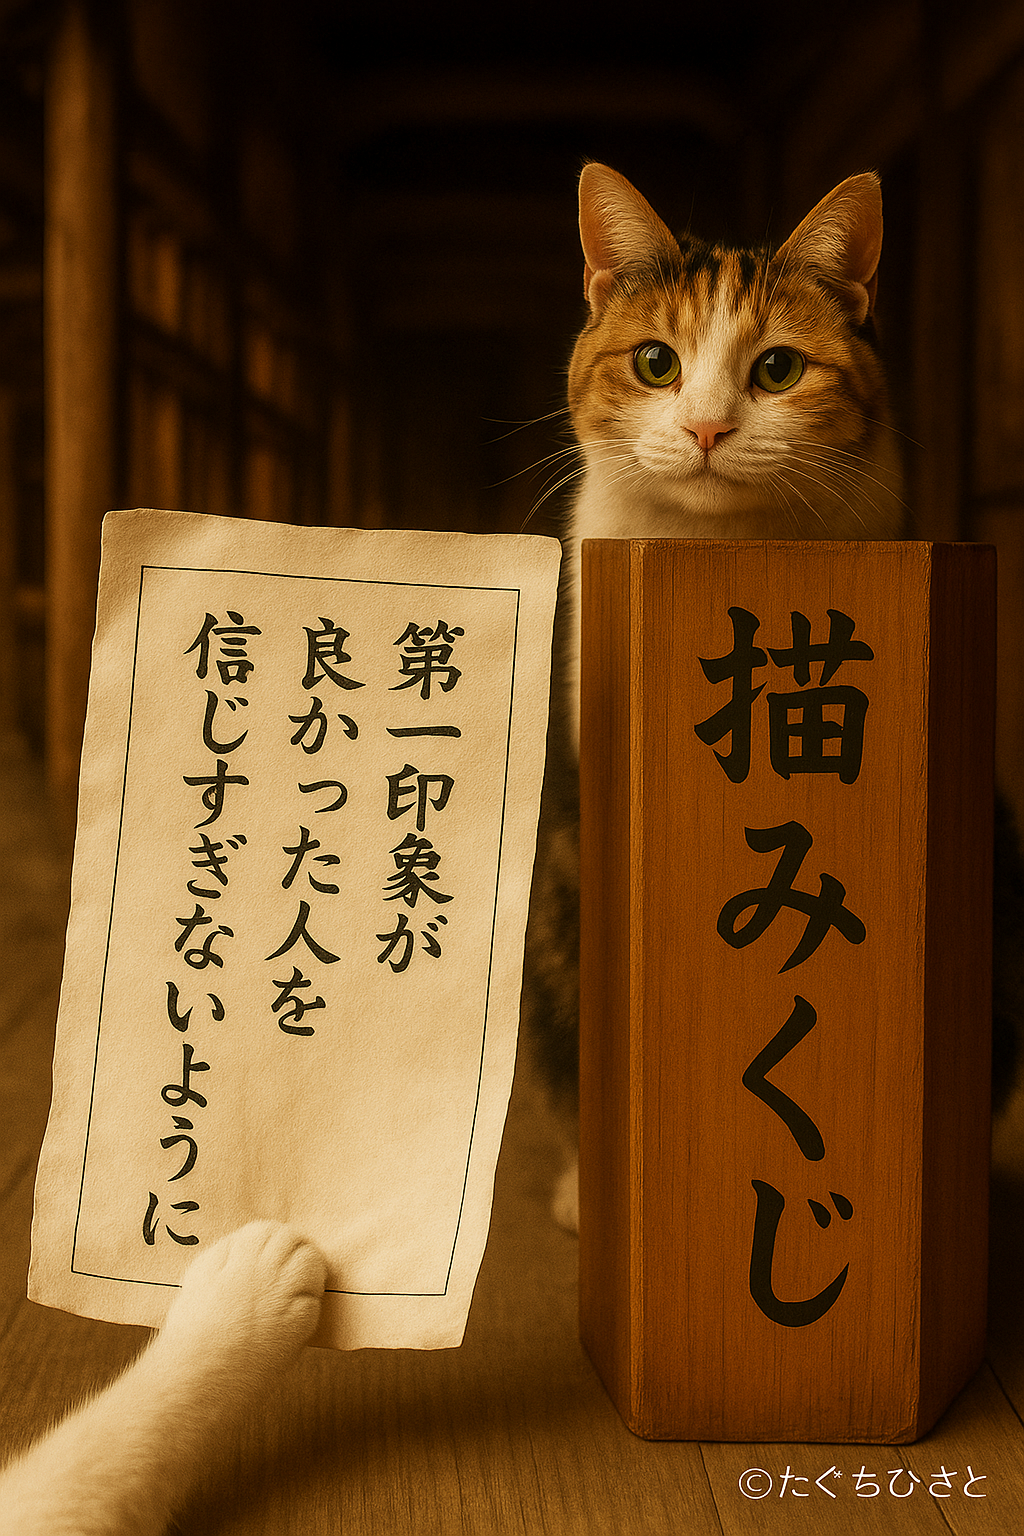 第一印象が
良かった人を
信じすぎないように
描みくじ
©たぐちひさと